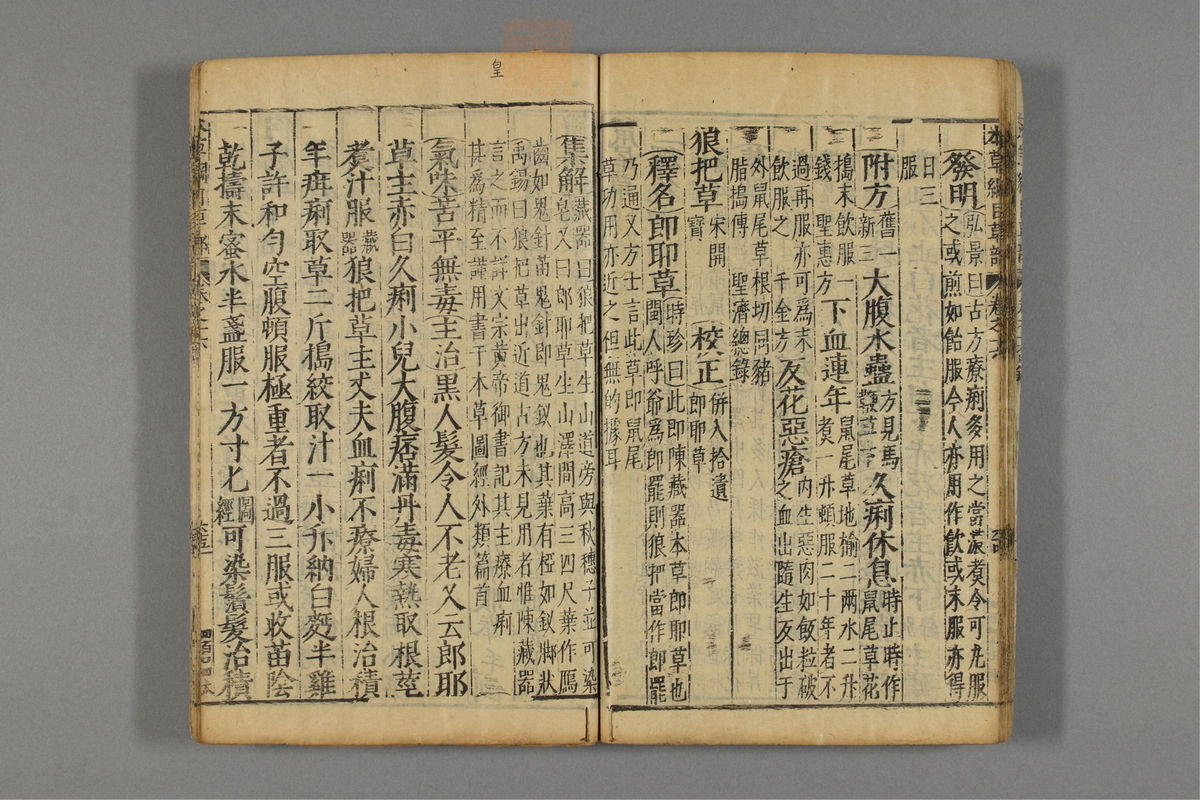 皇
本草綱目草部
發明弘景曰古方療痢多用之當濃煮令可丸服
之或煎如飴服今人亦用作飲或末服亦得
日三
服
附方舊一新三大腹水蠱方見馬鞭草下久痢休息時止時作
鼠尾草花
搗末飲服一
錢聖惠方下血連年鼠尾草地榆二兩水二升
煮一升頓服二十年者不
過再服亦可爲末
飲服之千金方反花惡瘡內生惡肉如飯粒破
之血出隨生反出于
外鼠尾草根切同豬
脂搗傅聖濟總錄
狼把草宋開寶校正併入拾遺
郎耶草
釋名郎耶草時珍曰此即陳藏器本草郎耶草也
閩人呼爺爲郎罷則狼把當作郎罷
乃通又方士言此草即鼠尾
草功用亦近之但無的據耳
集解藏器曰狼把草生山道旁與秋穗子並可染
皂又曰郎耶草生山澤間高三四尺葉作鴈
齒如鬼針苗鬼針即鬼釵也其葉有椏如釵脚狀
禹錫曰狼把草出近道古方未見用者惟陳藏器
言之而不詳文宗黃帝御書記其主療血痢
甚爲精至謹用書于本草圖經外類篇首
氣味苦平無毒主治黑人髮令人不老又云郎耶
草主赤白久痢小兒大腹痞滿丹毒寒熱取根莖
煮汁服藏器狼把草主丈夫血痢不療婦人根治積
年疳痢取草二斤搗絞取汁一小升納白麪半雞
子許和勻空腹頓服極重者不過三服或收苗陰
乾擣末蜜水半盞服一方寸匕圖經可染鬚髮治積